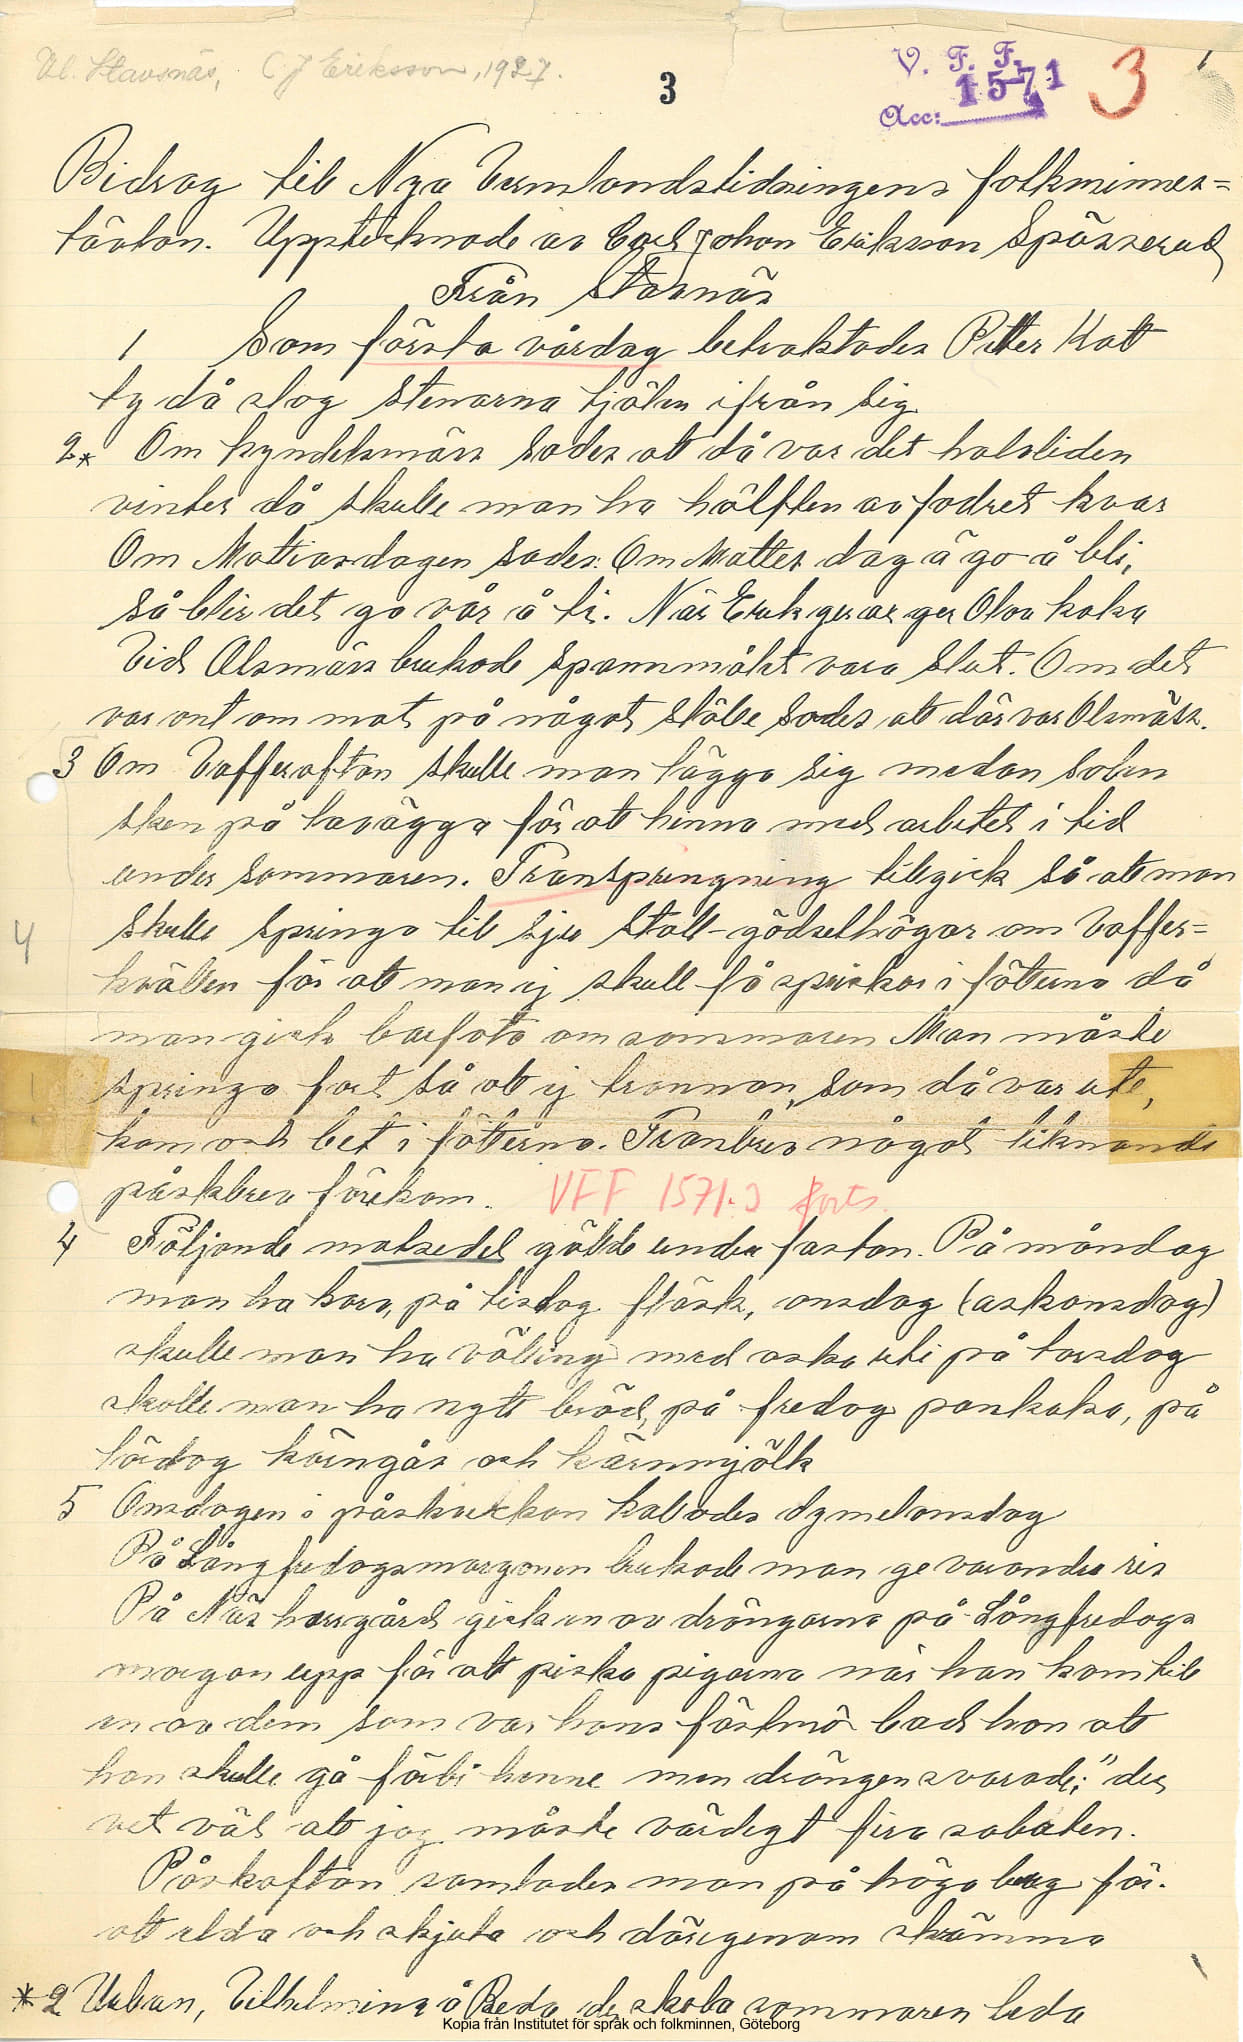 Vl. Stavnäs, C J Eriksson, 1927.
3
V. F. F.
1571
Acc:
3
1
Bidrag till Nya Vermlandstidningens folkminnes=
tävlan. Upptecknade av Carl Johan Eriksson Spässerud
Från Stavnäs
1 Som första vårdag betraktades Petter Katt
ty då slog stenarna tjälen ifrån sig
2* Om kyndelsmäss sades att då var det halvliden
vinter då skulle man ha hälften av fodret kvar
Om Mattiasdagen sades: Om Mattes dag ä go å bli,
så blir det go vår å ti. När Erik ger ax ger Olov kaka
Vid Olsmäss brukade spannmålet vara slut. Om det
var ont om mat på något ställe sades att där var Olsmäss.
3 Om Vafferafton skulle man lägga sig medan solen
sken på lavägga för att hinna med arbetet i tid
under sommaren. Transpringning tillgick så att man
4
skulle springa till sju stall-gödselhögar om Vaffer=
kvällen för att man ej skull få sprickor i fötterna då
man gick barfota om sommaren Man måste
springa fort så att ej trannan, som då var ute,
kom och bet i fötterna. Tranbrev något liknande
påskbrev förekom. VFF 1571:3 forts.
4 Följande matsedel gällde under fastan. På måndag
man ha korv, på tisdag fläsk, onsdag (askonsdag)
skulle man ha välling med aska uti på torsdag
skolle man ha nytt bröd, på fredag pankaka, på
lördag käringås och kärnmjölk
5 Onsdagen i påskveckan kallades dymelonsdag
På Långfredagsmorgonen brukade man ge varandra ris
På Näs herrgård gick en av drängarna på Långfredags
morgon upp för att piska pigorna när han kom till
en av dem som var hans fästmö bad hon att
han skulle gå förbi henne men drängen svarade; "du
vet väl att jag måste värdigt fira sabaten.
Påskafton samlades man på höga berg för.
att elda och skjuta och därigenom skrämma
*2 Urban, Vilhelmina å Beda de skola sommaren leda
Kopia från Institutet för språk och folkminnen, Göteborg